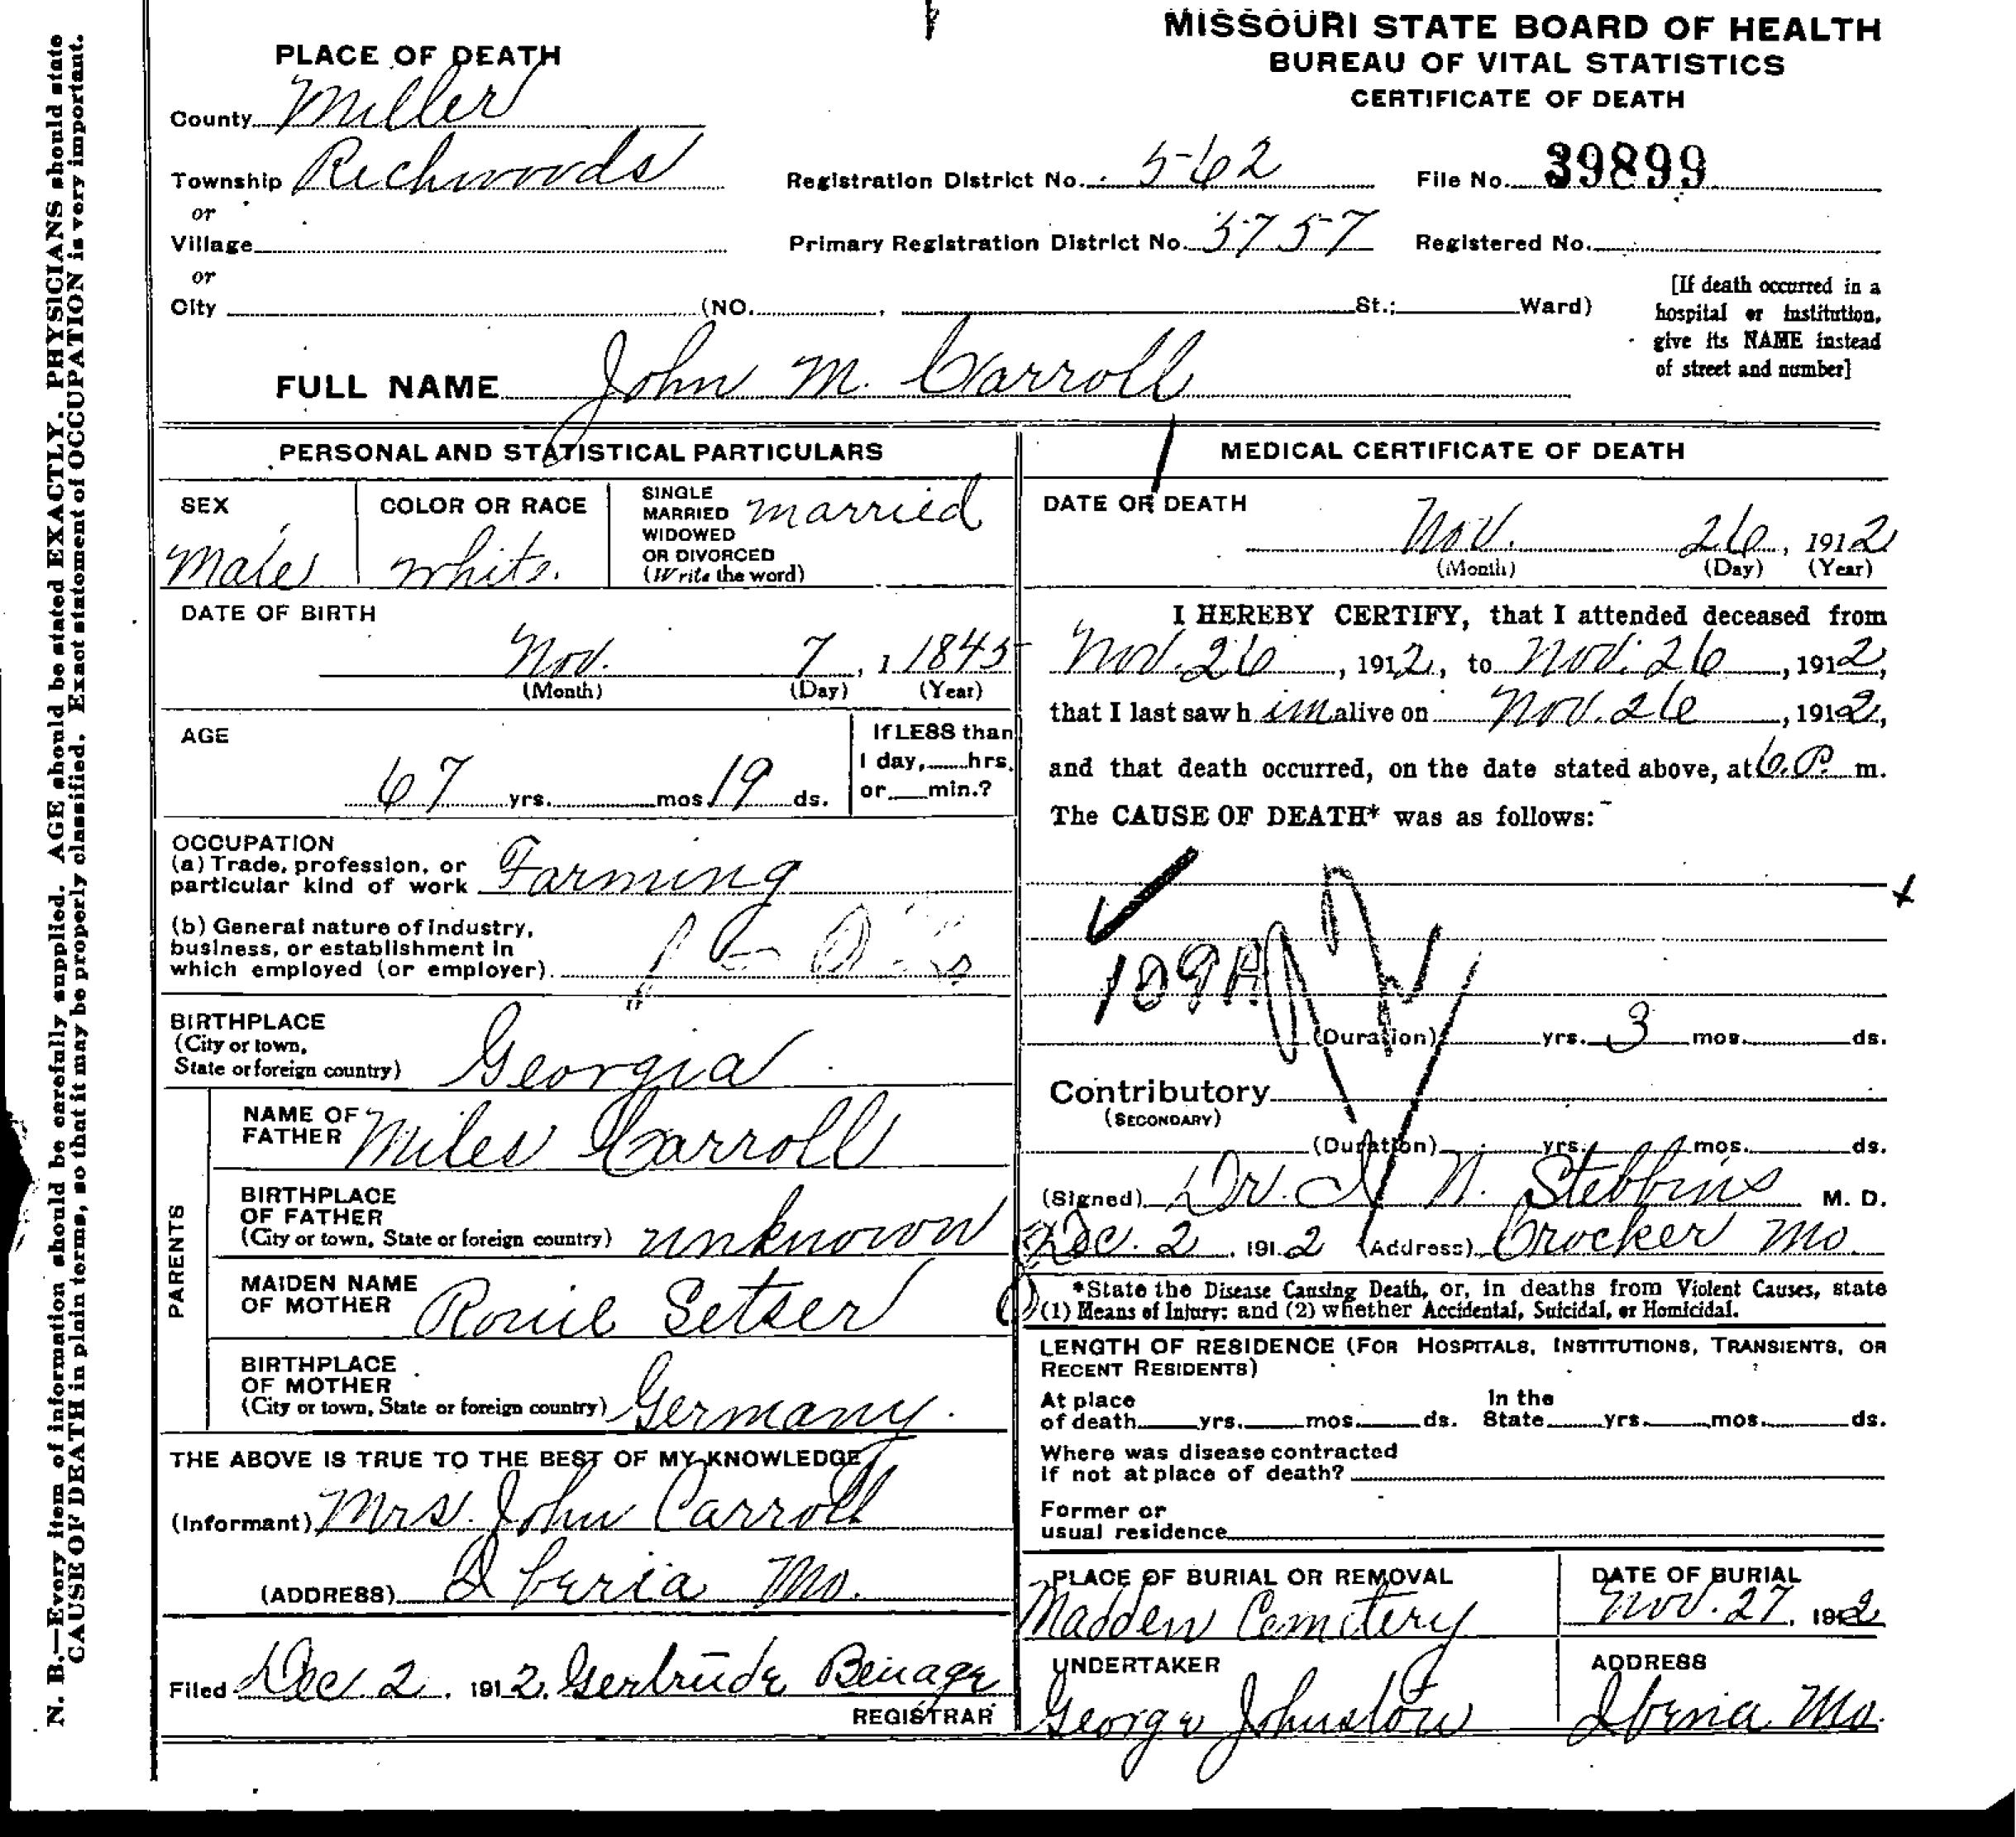 MISSOURI STATE BOARD OF HEALTH
BUREAU OF VITAL STATISTICS
CERTIFICATE OF DEATH
PLACE OF DEATH
County Miller
Township Richwoods
or
Village
or
City (NO. , St.; Ward)
Registration District No. 562
File No. 39899
Primary Registration District No. 5757
Registered No.
[If death occurred in a
hospital or institution,
give its NAME instead
of street and number]
FULL NAME John M. Carroll
PERSONAL AND STATISTICAL PARTICULARS
SEX
Male
COLOR OR RACE
white.
SINGLE
MARRIED
WIDOWED
OR DIVORCED
(Write the word)
married
DATE OF BIRTH
Nov. 7, 1 1845
(Month) (Day) (Year)
AGE
67 yrs. mos 19 ds.
If LESS than
1 day, hrs.
or min.?
OCCUPATION
(a) Trade, profession, or
particular kind of work Farming
(b) General nature of industry,
business, or establishment in
which employed (or employer)
BIRTHPLACE
(City or town,
State or foreign country) Georgia
PARENTS
NAME OF
FATHER Miles Carroll
BIRTHPLACE
OF FATHER
(City or town, State or foreign country) unknown
MAIDEN NAME
OF MOTHER Setser
BIRTHPLACE
OF MOTHER
(City or town, State or foreign country) Germany.
THE ABOVE IS TRUE TO THE BEST OF MY KNOWLEDGE
(Informant) Mrs. John Carroll
(ADDRESS) Iberia Mo.
Filed Dec. 2, 1912. Gertrude Benage
REGISTRAR
MEDICAL CERTIFICATE OF DEATH
DATE OF DEATH
Nov. 26, 1912
(Month) (Day) (Year)
I HEREBY CERTIFY, that I attended deceased from
Nov. 26, 1912, to Nov. 26, 1912,
that I last saw h im alive on Nov. 26, 1912,
and that death occurred, on the date stated above, at 6.P. m.
The CAUSE OF DEATH* was as follows:
109A
(Duration) yrs. 3 mos. ds.
Contributory
(SECONDARY)
(Duration) yrs. mos. ds.
(Signed) Dr. N. Stebbins M. D.
Dec. 2, 1912 (Address) Crocker Mo.
*State the Disease Causing Death, or, in deaths from Violent Causes, state
(1) Means of Injury; and (2) whether Accidental, Suicidal, or Homicidal.
LENGTH OF RESIDENCE (FOR HOSPITALS, INSTITUTIONS, TRANSIENTS, OR
RECENT RESIDENTS)
At place
of death yrs. mos. ds.
In the
State yrs. mos. ds.
Where was disease contracted
if not at place of death?
Former or
usual residence
PLACE OF BURIAL OR REMOVAL
Madden Cemetery
DATE OF BURIAL
Nov. 27, 1912
UNDERTAKER
George Johnston
ADDRESS
Iberia Mo.
N. B.—Every item of information should be carefully supplied. AGE should be stated EXACTLY. PHYSICIANS should state
CAUSE OF DEATH in plain terms, so that it may be properly classified. Exact statement of OCCUPATION is very important.